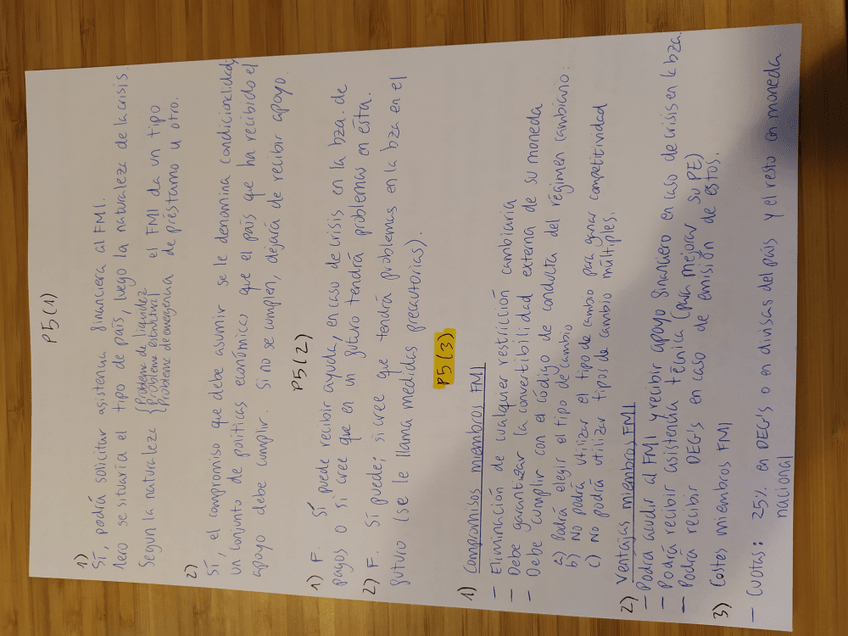 P5(1)
1)
Sí, podrá solicitar asistencia financiera al FMI.
1ero se situaría el tipo de país, luego la naturaleza de la crisis.
Segun la naturaleza { Problema de liquidez
Problema estructural
Problema de emergencia
el FMI da un tipo
de préstamo u otro.
2)
Sí, el compromiso que debe asumir se le denomina condicionalidad;
un conjunto de políticas económicas que el país que ha recibido el
apoyo debe cumplir. Si no se cumplen, dejará de recibir apoyo
P5(2)
1) F. Sí puede recibir ayuda, en caso de crisis en la bza. de
pagos o si cree que en un futuro tendrá problemas en ésta.
2) F. Sí puede; si cree que tendrá problemas en la bza en el
futuro (se le llama medidas precautorias).
P5(3)
1) Compromisos miembros FMI
- Eliminación de cualquier restricción cambiaria
- Debe garantizar la convertibilidad externa de su moneda
- Debe cumplir con el código de conducta del régimen cambiario:
a) Podrá elegir el tipo de cambio
b) No podrá utilizar el tipo de cambio para ganar competitividad
c) No podrá utilizar tipos de cambio múltiples.
2) Ventajas miembros FMI
- Podrá acudir al FMI y recibir apoyo financiero en caso de crisis en la bza.
- Podrá recibir asistencia técnica (para mejorar su PE)
- Podrá recibir DEG's en caso de emisión de estos.
3) Costes miembros FMI
- Cuotas: 25% en DEG's o en divisas del país y el resto en moneda
nacional